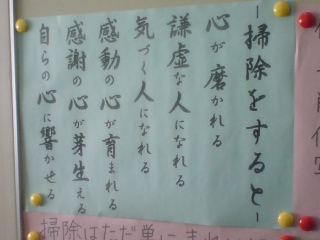 －掃除をすると－
心が磨かれる
謙虚な人になれる
気づく人になれる
感動の心が育まれる
感謝の心が芽生える
自らの心に響かせる
掃除はただ単に